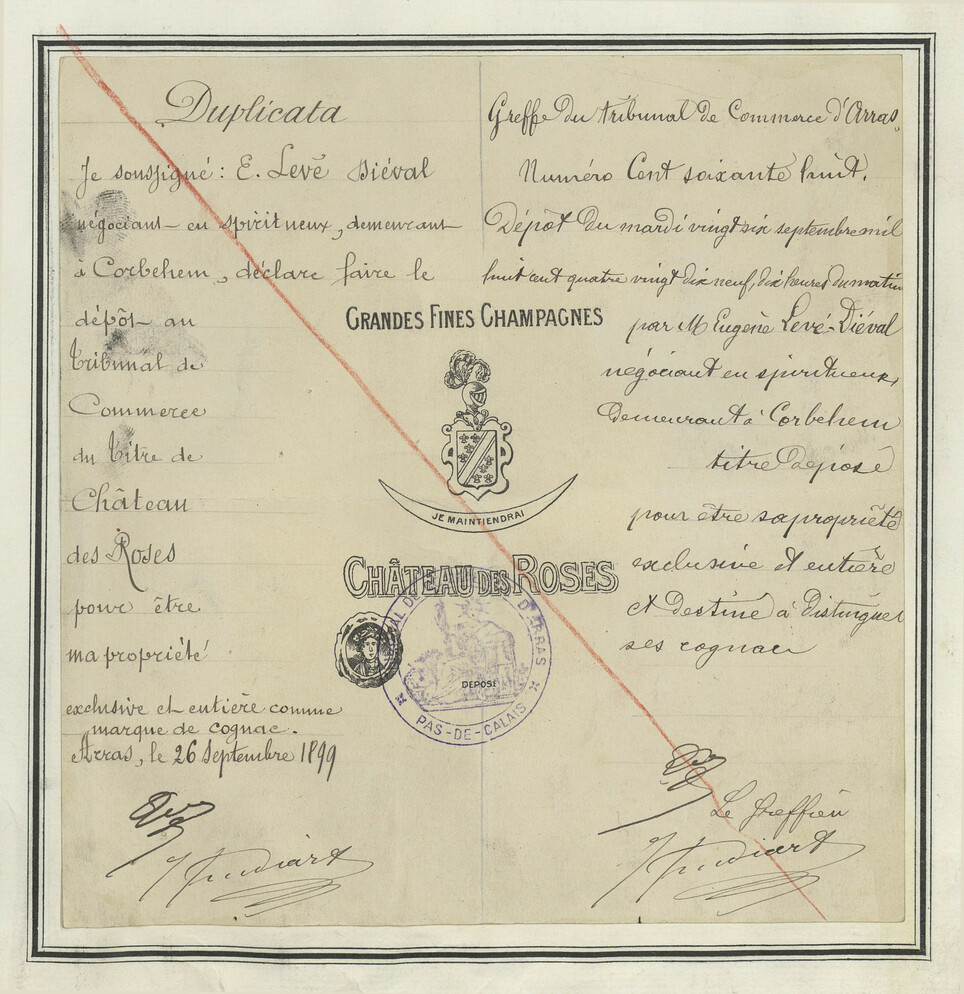 Duplicata
Je soussigné : E. Levé Diéval
négociant en spiritueux, demeurant
à Corbehem, déclare faire le
dépôt au
tribunal de
Commerce
du titre de
Château
des Roses
pour être
ma propriété
exclusive et entière comme
marque de cognac.
Arras, le 26 Septembre 1899
GRANDES FINES CHAMPAGNES
JE MAINTIENDRAI
CHÂTEAU DES ROSES
DÉPOSÉ
D'ARRAS
PAS-DE-CALAIS
Greffe du tribunal de Commerce d'Arras.
Numéro Cent soixante huit.
Dépôt du mardi vingt six septembre mil
huit cent quatre vingt dix neuf, dix heures du matin
par M Eugène Levé-Diéval
négociant en spiritueux,
demeurant à Corbehem
titre déposé
pour être sa propriété
exclusive et entière
et destiné à distinguer
ses cognac
Le Greffier